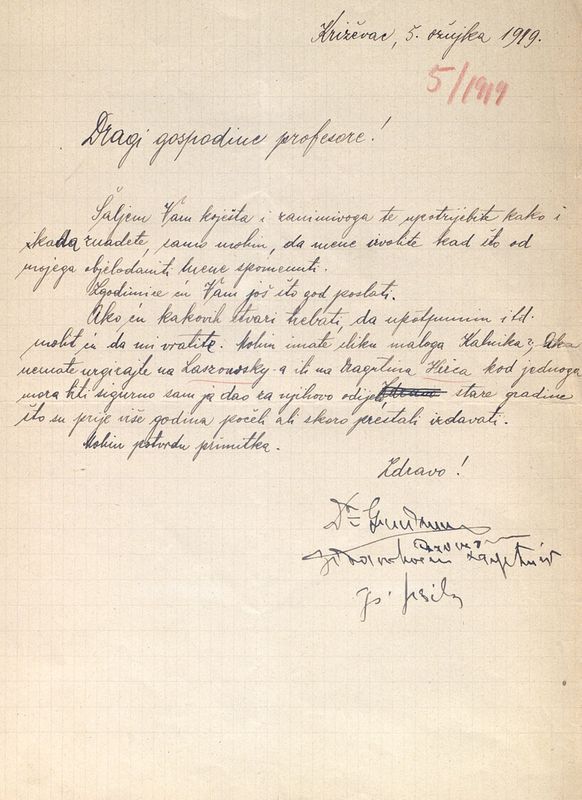 Križevac, 5. ožujka 1919.
5/1919
Dragi gospodine profesore!
Šaljem Vam koješta i zanimivoga te upotrijebite kako i
kada znadete, samo molim, da mene izvolite kad što od
mojega objelodaniti mene spomenuti.
Zgodimice ću Vam još što god poslati.
Ako ću kakovih stvari trebati, da upotpunim i td.
molit ću da mi vratite. Molim imate sliku maloga Kalnika?; Ako
nemate urgirajte na Laszowsky-a ili na Dragutina Hirca kod jednoga
mora biti sigurno sam ja dao za njihovo odijelo, stare gradine
što su prije više godina počeli ali skoro prestali izdavati.
Molim potvrdu primitka.
Zdravo!
Dr Gundrum